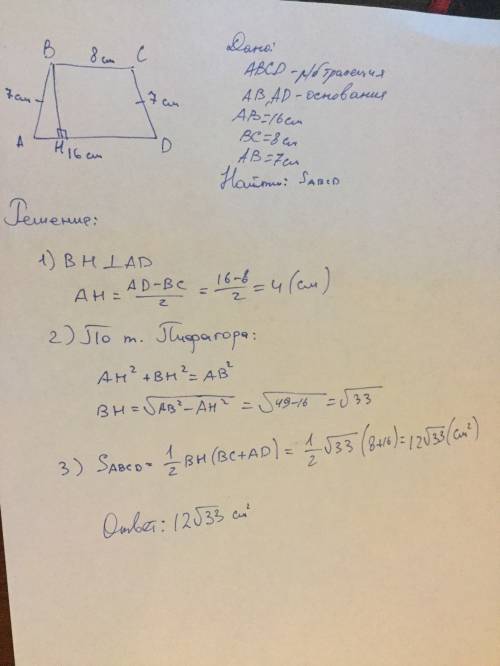 B 8см C
7см 7см
A H D
16см
Дано:
ABCD - р/б трапеция
AB, AD - основания
AB=16см
BC=8см
AB=7см
Найти: S ABCD
Решение:
1) BH⊥AD
AH = (AD-BC)/2 = (16-8)/2 = 4 (см)
2) По т. Пифагора:
AH² + BH² = AB²
BH = √(AB² - AH²) = √(49-16) = √33
3) S ABCD = 1/2 BH (BC+AD) = 1/2 √33 (8+16) = 12√33 (см²)
Ответ: 12√33 см²